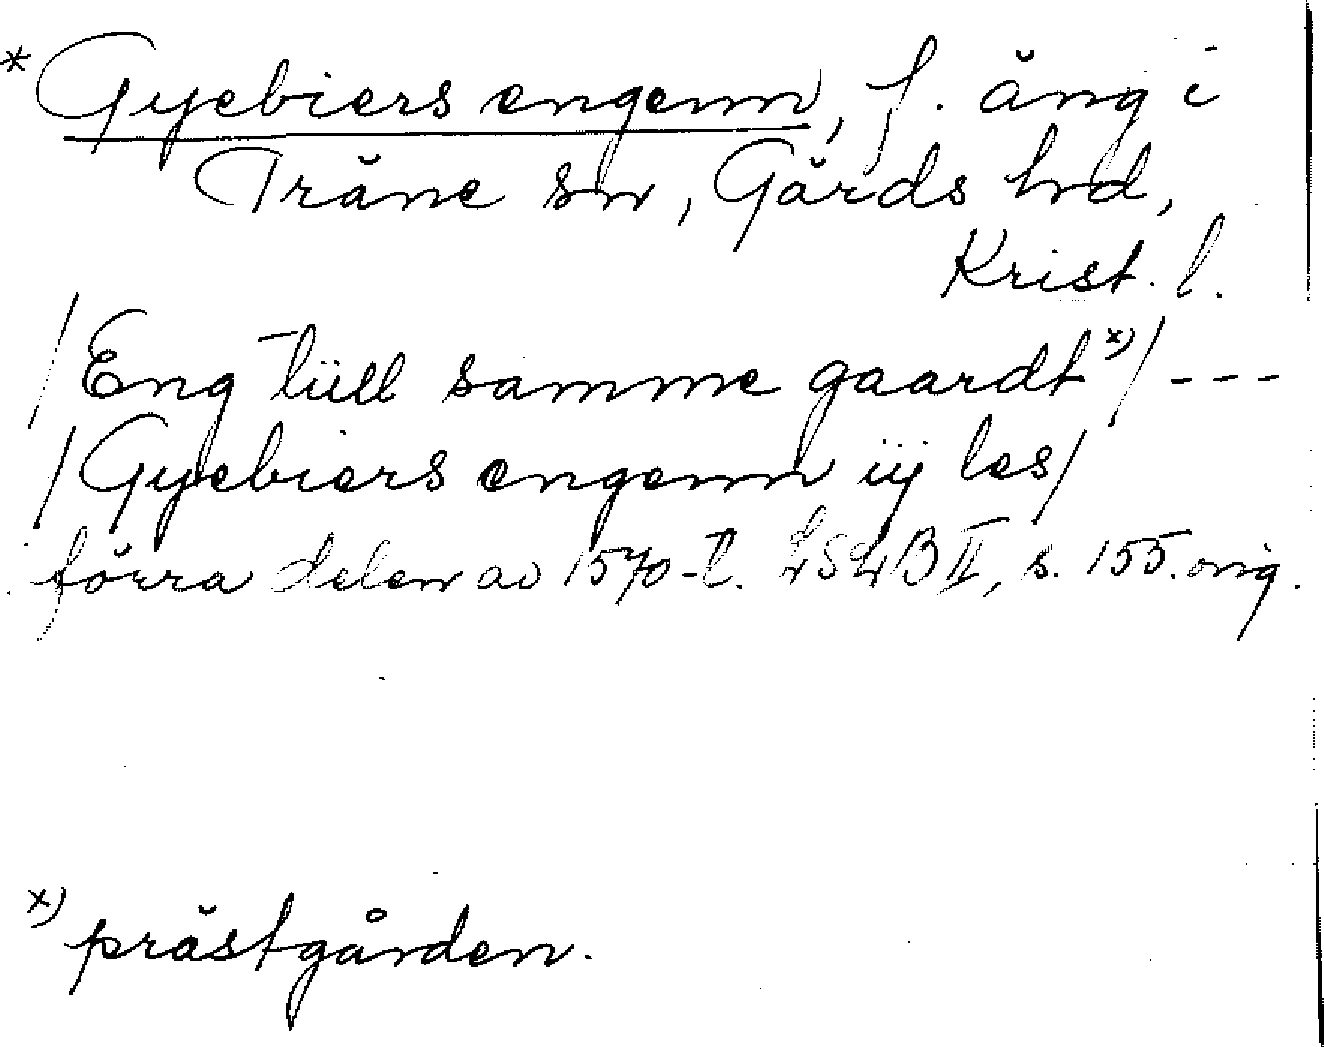 *Gyebiers engenn, f. äng i
Träne sn, Gärds hd,
Krist. l.
/Eng tüll samme gaardt x)/ ---
/Gyebiers engenn iij les/
förra delen av 1570-t. LSLB II, s. 155. orig.
x) prästgården.